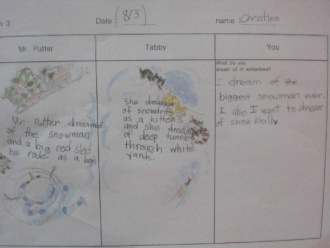 n 3
Date (8/3)
name : Christina
Mr. Putter
Tabby
You
What do you
dream of in wintertime?
Mr. Putter dreamed
of the snowman
and a big red sled
he rode as a boy.
She dreamed
of snowdrifts
as a kitten
and she dreamed
of deep tunnels
through white
yards.
I dream of the
biggest snowman ever.
I also want to dream
of snow balls.